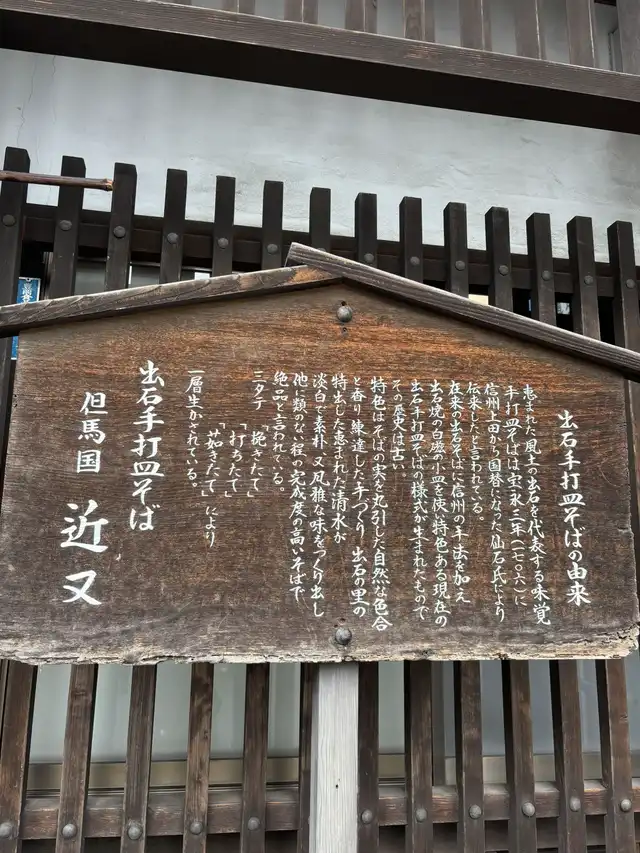 出石手打皿そばの由来
恵まれた風土の出石を代表する味覚
手打皿そばは宝永三年(一七〇六)に
信州上田から国替になった仙石氏により
伝来したと言われている。
在来の出石そばに信州の手法を加え
出石焼の白磁の小皿を使い特色ある現在の
出石手打皿そばの様式が生まれたもので
その歴史は古い。
特色はそばの実を丸引した自然な色合
と香り練達した手づくり出石の里の
特出した恵まれた清水が
淡白で素朴、又風雅な味をつくり出し
他に類のない程の完成度の高いそばで
絶品と言われている。
三タテ「挽きたて」
「打ちたて」
「茹きたて」により
一層生かされている。
出石手打皿そば
但馬国 近又